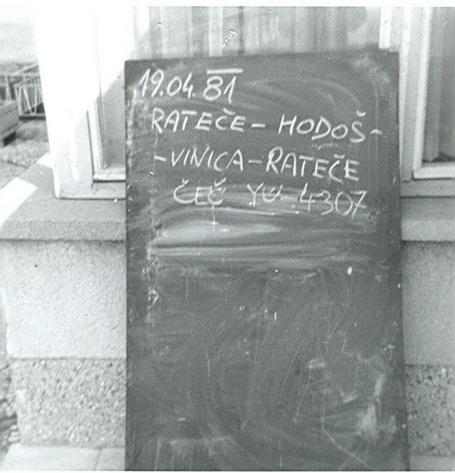 19.04.81
RATEČE - HODOŠ -
- VINICA - RATEČE
ČEČ YU-4307